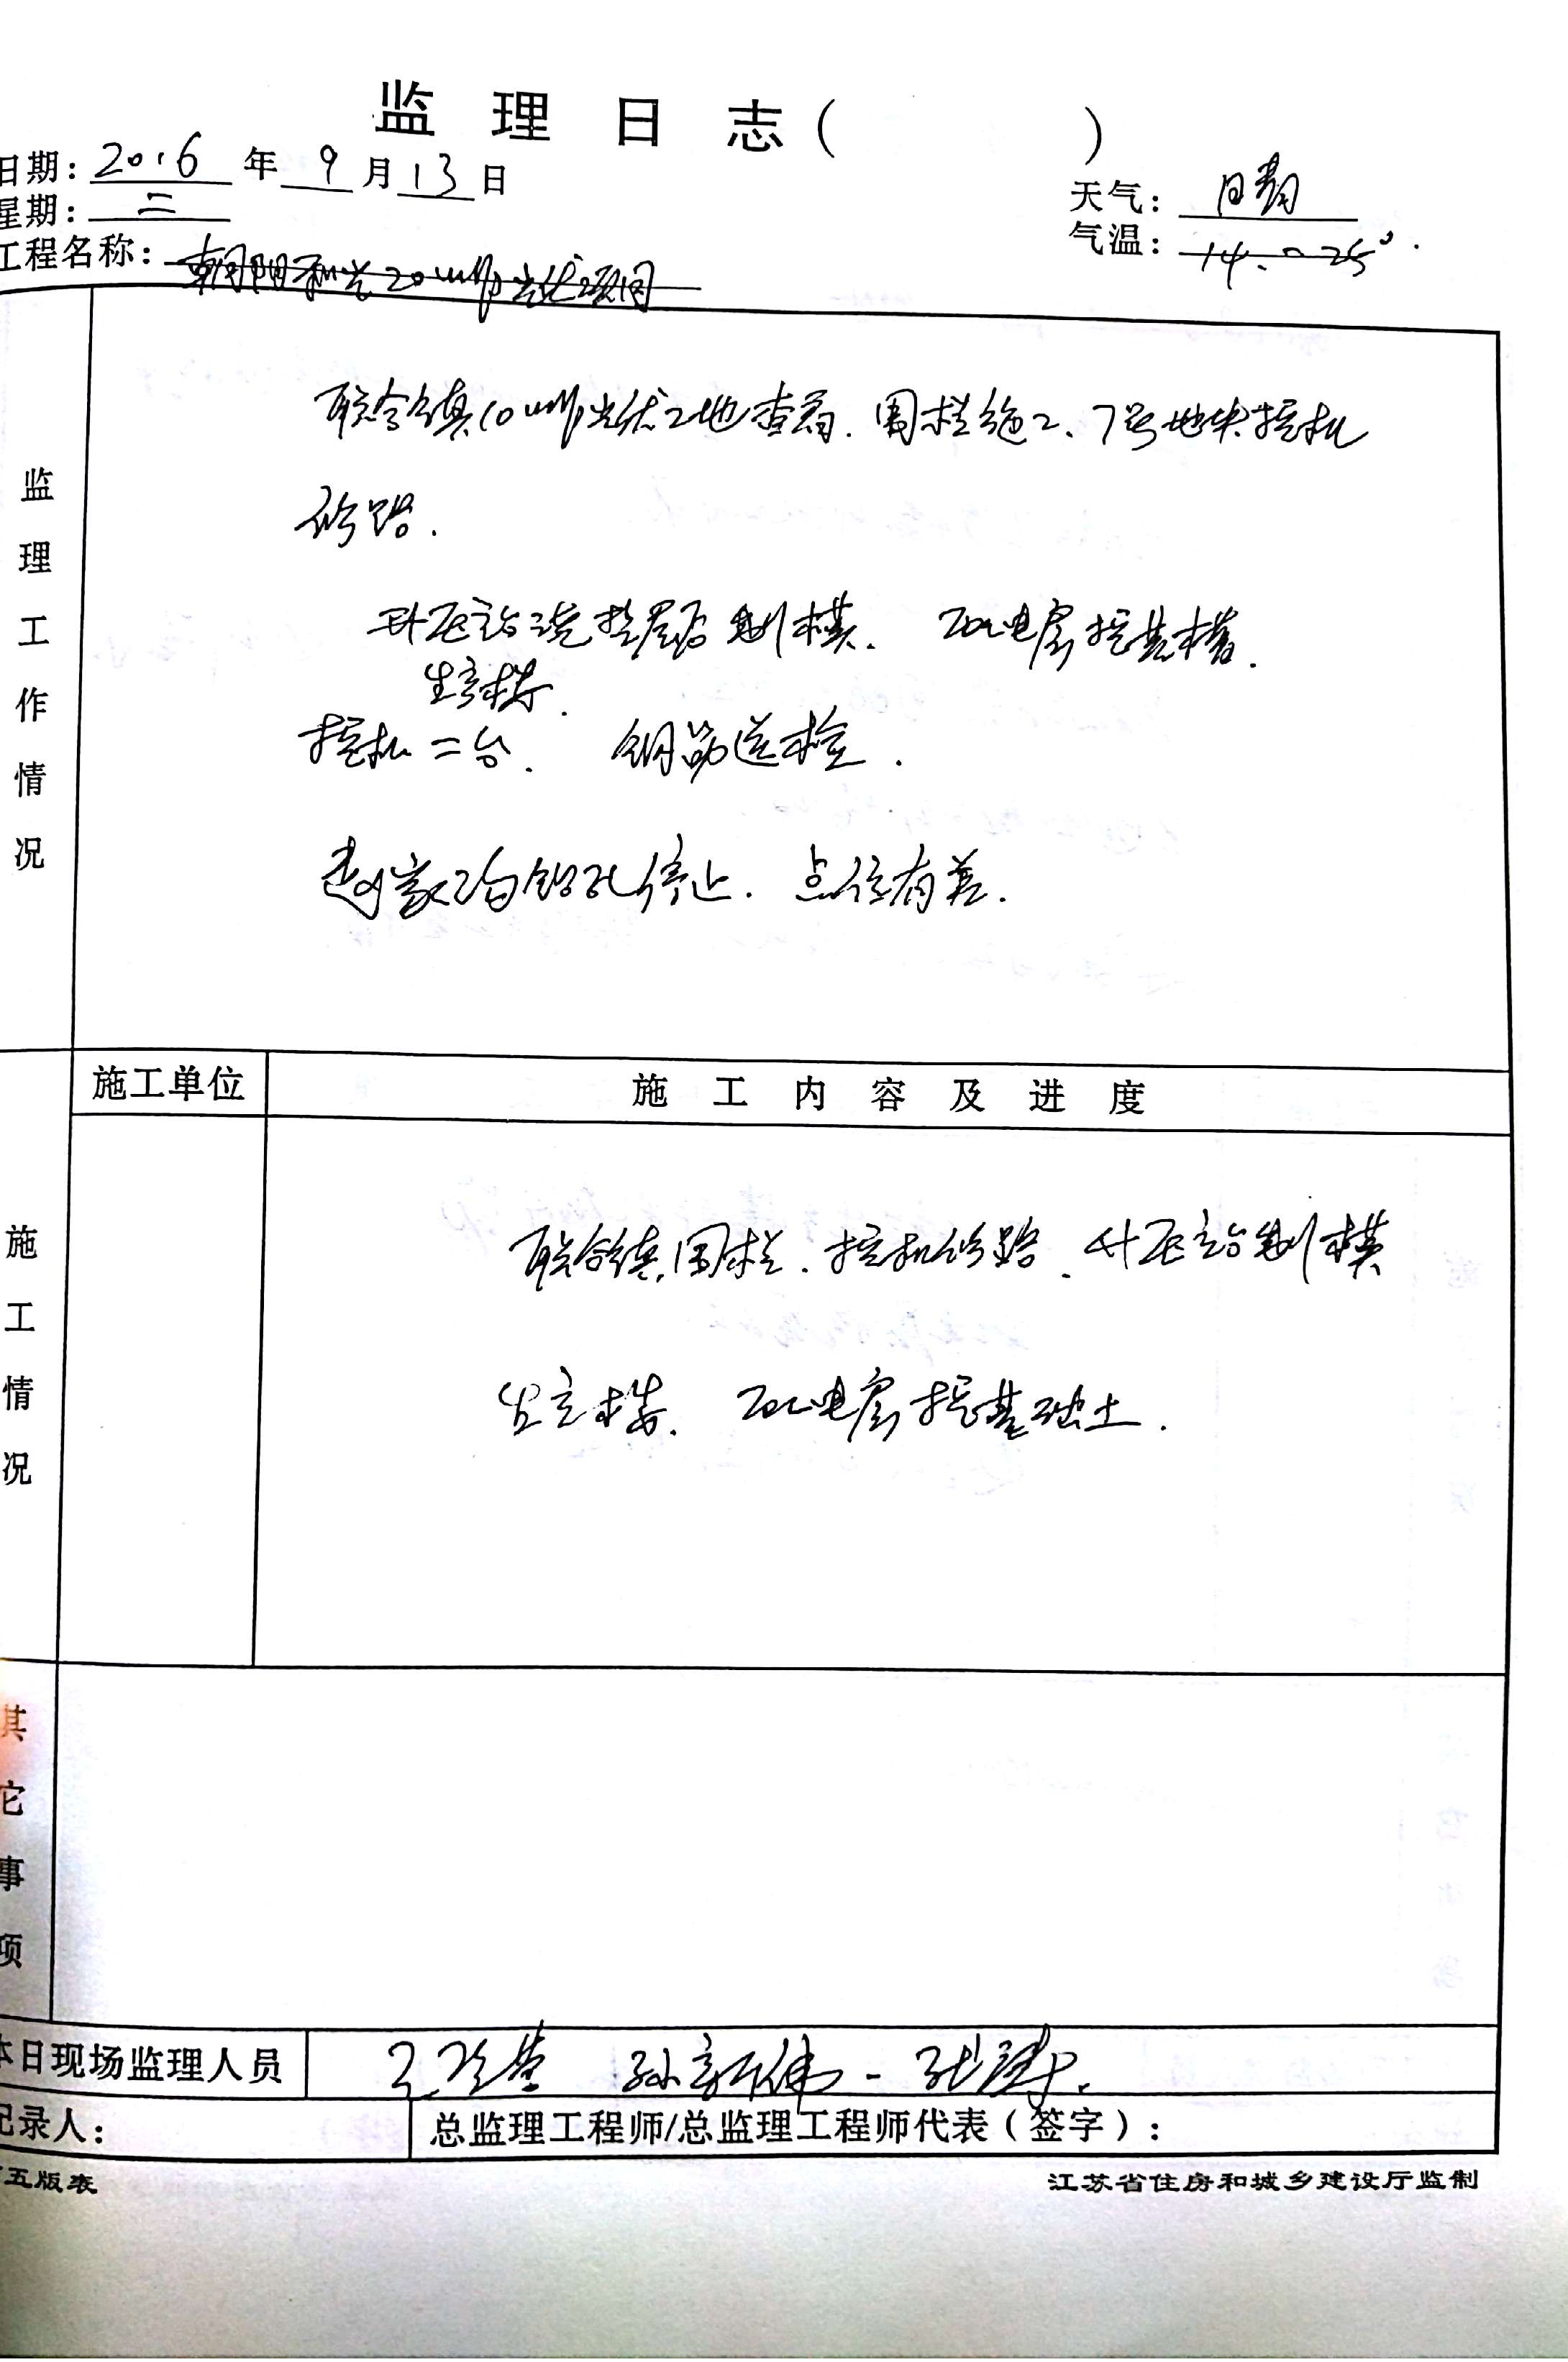 监理日志（ ）
日期：2016年9月13日
星期：二
天气：晴
气温：14.0-25°.
工程名称：朝阳和光20MWp光伏项目
监理工作情况
联合镇10MWp光伏工地查看.围栏施工、7号地块挖机
修路.
升压站浇垫层后制模.配电房挖基槽.
生产楼.
挖机二台.钢筋送检.
赵家沟钻孔停止.点位有差.
施工单位
施工内容及进度
施工情况
联合镇.围栏.挖机修路、升压站制模
生产楼.配电房挖基础土.
其它事项
本日现场监理人员
孙新伟-
记录人：
总监理工程师/总监理工程师代表（签字）：
五版表
江苏省住房和城乡建设厅监制